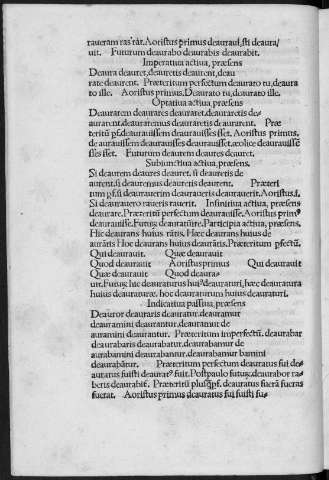 raueram ras rat. Aoristus primus deauraui, sti deaura/
uit. Futurum deaurabo deaurabis deaurabit.
Imperatiua actiua, præsens
Deaura deauret, deauretis deaurent, deau
rate deaurent. Præteritum perfectum deaurato tu, deaura
to ille. Aoristus primus. Deaurato tu, deaurato ille.
Optatiua actiua, præsens
Deaurarem deaurares deauraret, deauraretis de/
aurarent, deauraremus deauraretis deaurarent. Præ
teritū pf. deaurauissem deaurauisses sset. Aoristus primus,
deaurauissem deaurauisses deaurauisset, æolice deaurauissē
sses sset. Futurum deaurem deaures deauret.
Subiunctiua actiua, præsens,
Si deaurem deaures deauret, si deauretis de
aurent, si deauremus deauretis deaurent. Præteri
tum pf. si deaurauerim deauraueris deaurauerit. Aoristus. j.
Si deaurauero raueris rauerit. Infinitiua actiua, præsens
deaurare. Præteritū perfectum deaurauisse. Aoristus primꝰ
deaurauisse. Futuȝ. deauraturū ire. Participia actiua, præsens,
Hic deaurans huius rātis. Hæc deaurans huius de
aurātis Hoc deaurans huius deaurātis. Præteritum pfectū.
Qui deaurauit. Quæ deaurauit
Quod deaurauit Aoristus primus Qui deaurauit
Quæ deaurauit Quod deaura/
uit. Futuȝ. hic deauraturus huiꝰ deauraturi, hæc deauratura
huius deauraturæ, hoc deauraturum huius deauraturi.
Indicatiua passiua, præsens
Deauror deauraris deauratur, deauramur
deauramini deaurantur, deauramur de
auramini deaurantur. Præteritum imperfectū. deaurabar
deaurabaris deaurabatur, deaurabamur de
aurabamini deaurabantur, deaurabamur bamini
deaurabātur. Præteritum perfectum deauratus fui de/
auratus fuisti deauratꝰ fuit. Postpaulo futuȝ. deaurabor ra
beris deaurabiť. Præteritū plusq̄pf. deauratus fuerā fueras
fuerat. Aoristus primus deauratus fui fuisti fu/